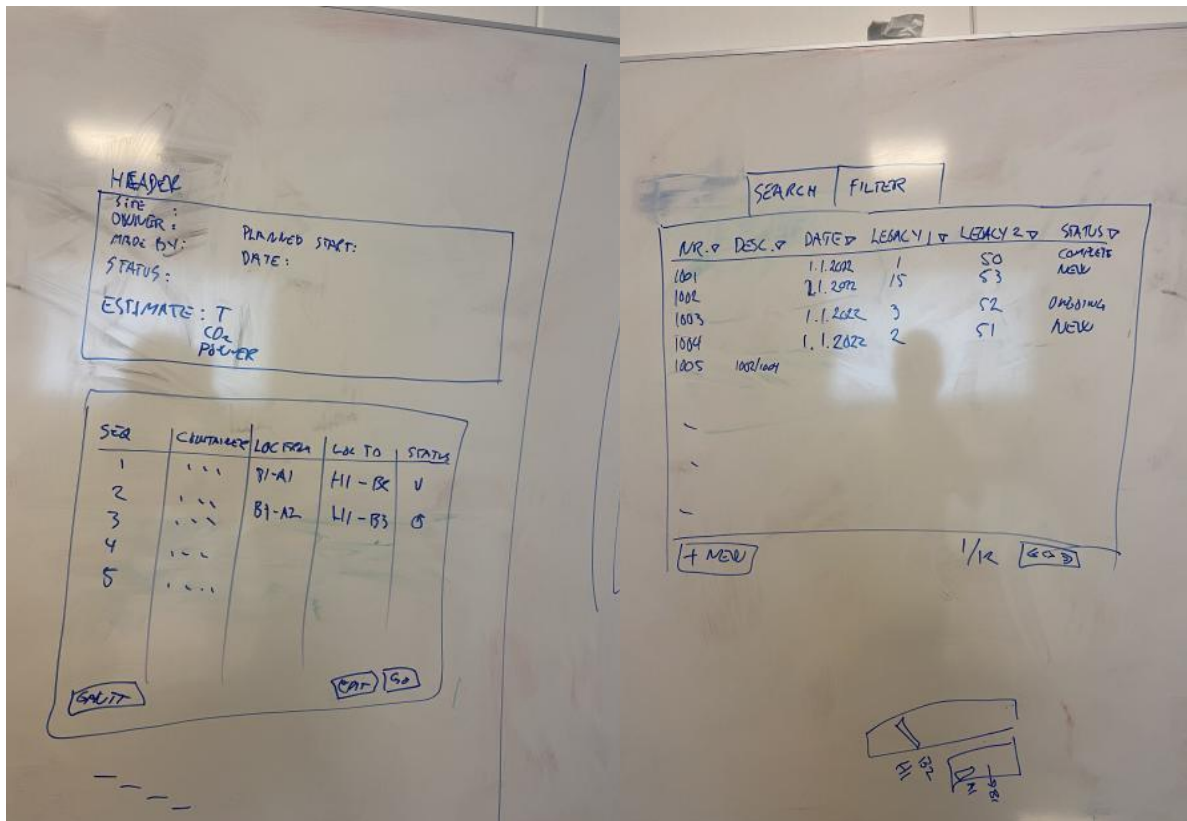 HEADER
SITE :
OWNER :
MADE BY :
PLANNED START:
DATE :
STATUS :
ESTIMATE : T
CO2
POWER
SEQ CONTAINER LOC FROM LOC TO STATUS
1 B1-A1 H1-B2 V
2
3 B1-A2 H1-B3
4
5
GANTT EDIT GO
SEARCH FILTER
NR. DESC. DATE LEGACY 1 LEGACY 2 STATUS
1001 1.1.2022 1 50 COMPLETE
1002 2.1.2022 15 53 NEW
1003 1.1.2022 3 52 ONGOING
1004 1.1.2022 2 51 NEW
1005 1002/1004
+ NEW 1/12
H1 B2
A1 B1